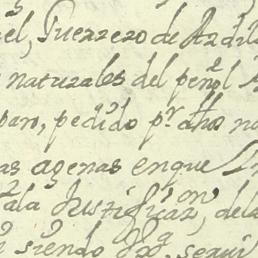 el, Guerrero de Ardil
naturales del peñol
paro, pedido pr. dho no
as agenas enque
ala Justificaz.on, dela
siendo